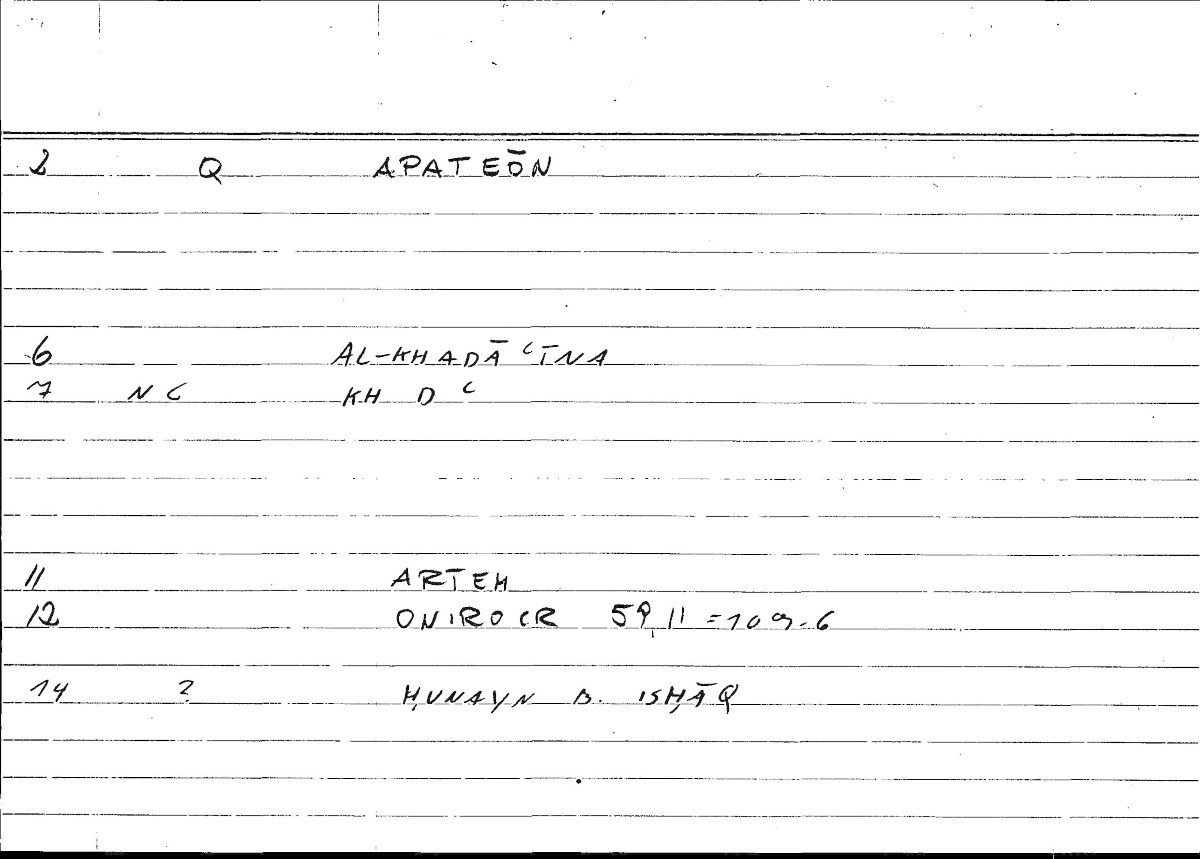 2 Q APATEŌN
6 AL-KHADĀ ʿĪNA
7 N C KH D ʿ
11 ARTEM
12 ONIROCR 59,11 = 109.6
14 ? ḤUNAYN B. ISḤĀQ